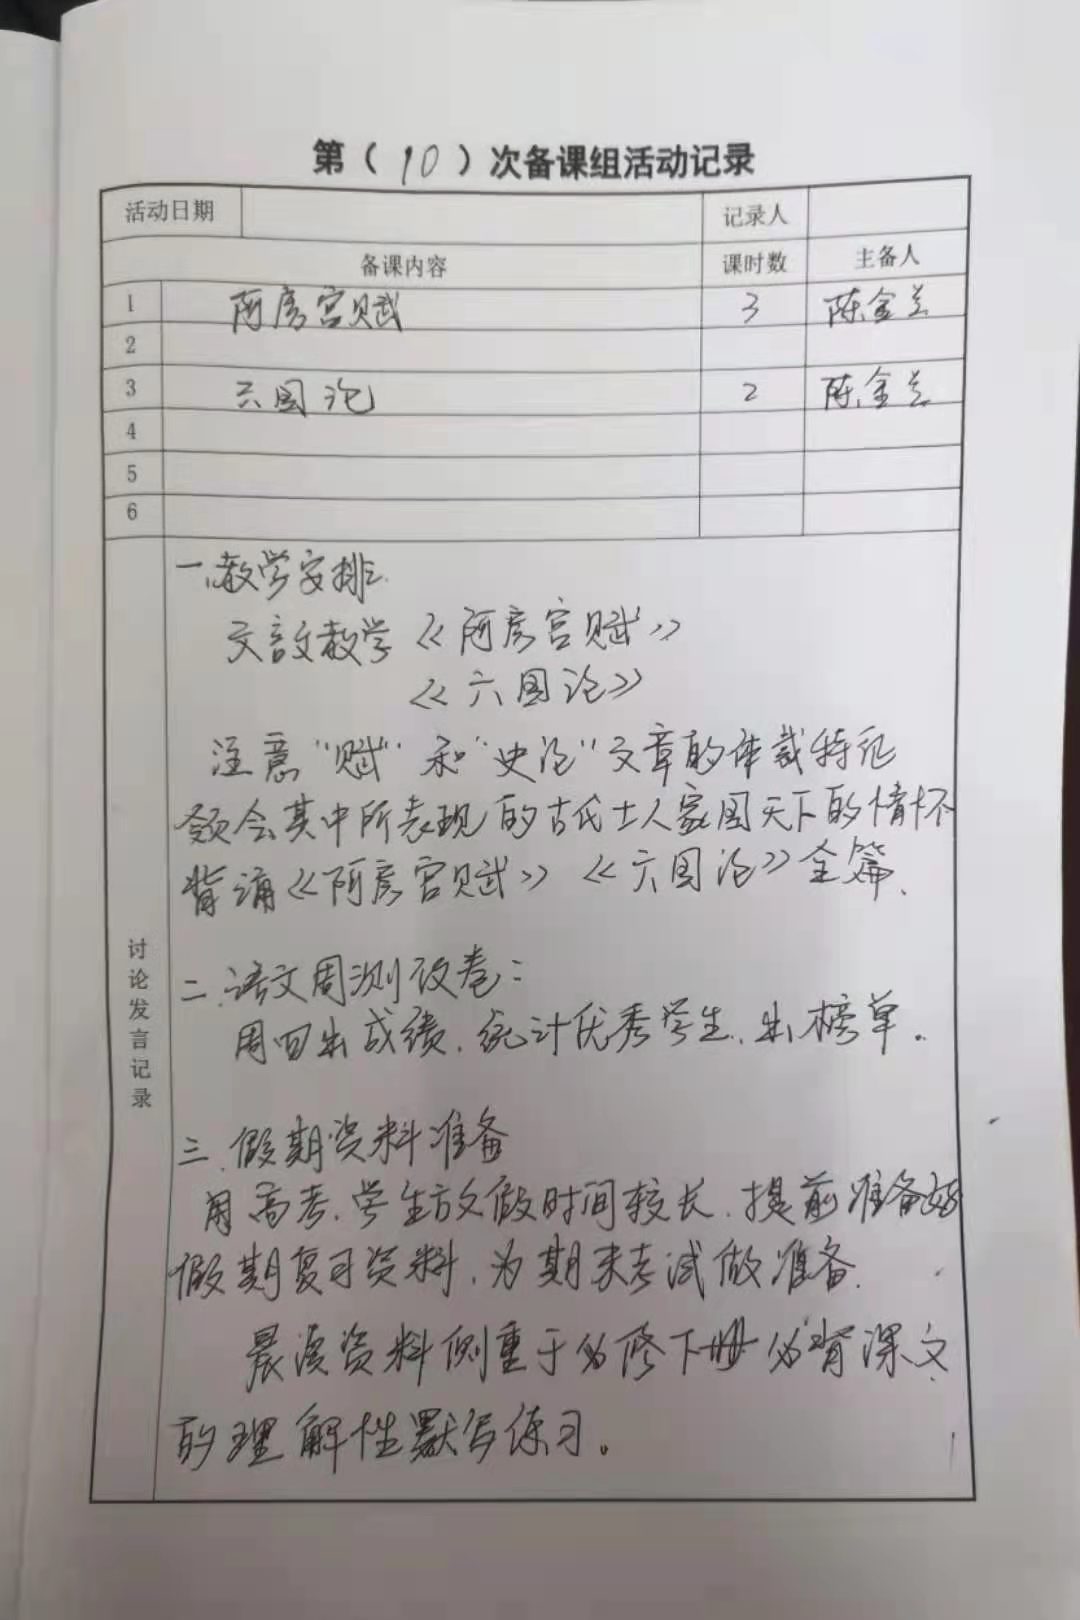 第（10）次备课组活动记录
活动日期 记录人
备课内容 课时数 主备人
1 阿房宫赋 3 陈金兰
2
3 六国论 2 陈金兰
4
5
6
讨论发言记录
一、教学安排.
文言文教学《阿房宫赋》
《六国论》
注意“赋”和“史论”文章的体裁特征
领会其中所表现的古代士人家国天下的情怀
背诵《阿房宫赋》《六国论》全篇.
二、语文周测改卷：
周四出成绩、统计优秀学生、出榜单。
三、假期资料准备
因高考、学生放假时间较长、提前准备好
假期复习资料、为期末考试做准备.
晨读资料侧重于必修下册必背课文
的理解性默写练习。